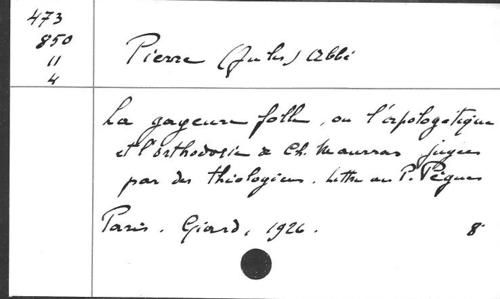 473
850
11
4
Pierre (Jules) Abbé
La gageure folle, ou l'apologétique
et l'orthodoxie de Ch. Maurras jugées
par des théologiens. Lettre au P. Pègues
Paris. Giard, 1926. 8°